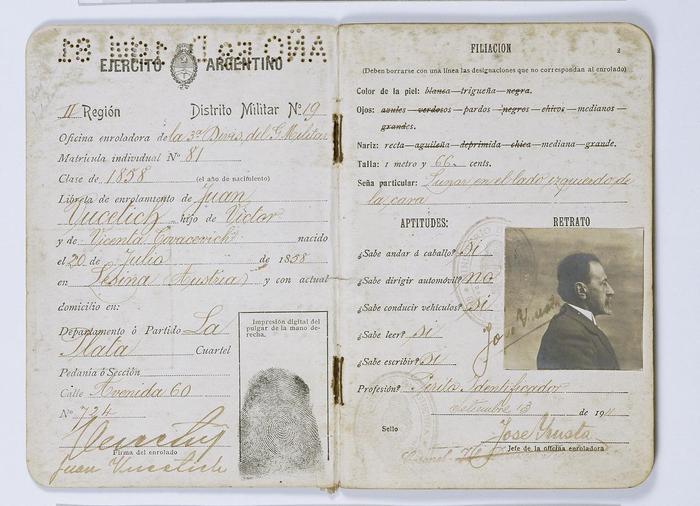 EJERCITO ARGENTINO
II Región Distrito Militar N.º 19
Oficina enroladora de la 3ª Devis. del G. Militar
Matrícula individual N.º 81
Clase de 1858 (el año de nacimiento)
Libreta de enrolamiento de Juan
Vucetich hijo de Victor
y de Vicenta Covacevich nacido
el 20 de Julio de 1858
en Lesina (Austria) y con actual
domicilio en:
Departamento ó Partido La
Plata Cuartel
Pedanía ó Sección
Calle Avenida 60
N.º 724
Firma del enrolado
Juan Vucetich
Impresión digital del
pulgar de la mano de-
recha.
FILIACION
2
(Deben borrarse con una línea las designaciones que no correspondan al enrolado)
Color de la piel: blanca—trigueña—negra.
Ojos: azules—verdosos—pardos—negros—chicos—medianos—
grandes.
Nariz: recta—aguileña—deprimida—chica—mediana—grande.
Talla: 1 metro y 66 cents.
Seña particular: Lunar en el lado izquierdo de
la cara
APTITUDES: RETRATO
¿Sabe andar á caballo? Si
¿Sabe dirigir automóvil? no
¿Sabe conducir vehículos? Si
¿Sabe leer? Si
¿Sabe escribir? Si
Profesión? Perito Identificador
setiembre 13 de 1911
Sello
José Gusta
Jefe de la oficina enroladora